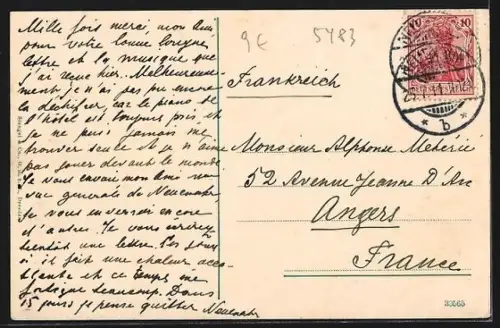 Mille fois merci, mon ami
pour votre bonne longue
lettre et la musique que
j'ai reçue hier. Malheureuse-
ment, je n'ai pas pu encore
la déchiffrer, car le piano de
l'hôtel est toujours pris, et
je ne puis jamais me
trouver seule et je n'aime
pas jouer devant le monde
Je vous envoie mon ami une
vue générale de Neuenahr
je vous en verrai encore
d'autres. Je vous écrirai
bientôt une lettre. Ces jours
ci il fait une chaleur acca-
blante et ce temps me
fatigue beaucoup. Dans
15 jours je pense quitter Neuenahr
9€ 5483
10
b
Frankreich
Monsieur Alphonse
52 Avenue Jeanne D'Arc
Angers
France
33565